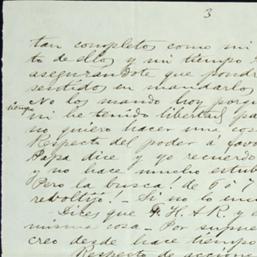 3
tan completos como mi
to de dtos y mi tiempo
asegurandote que pondre
sentidos en mandarlos
No los mando hoy porque
tiempo
mi he tenido libertad pa
no quiero hacer una cos
Respecto del poder á favo
Papa dice y yo recuerdo
y no hace mucho estub
Pero la busca! de 6 ó 7
reboltijo! - Si no lo enc
Dices que F. K. A & R. y
misma cosa - Por supue
creo desde hace tiempo
Respecto de accione